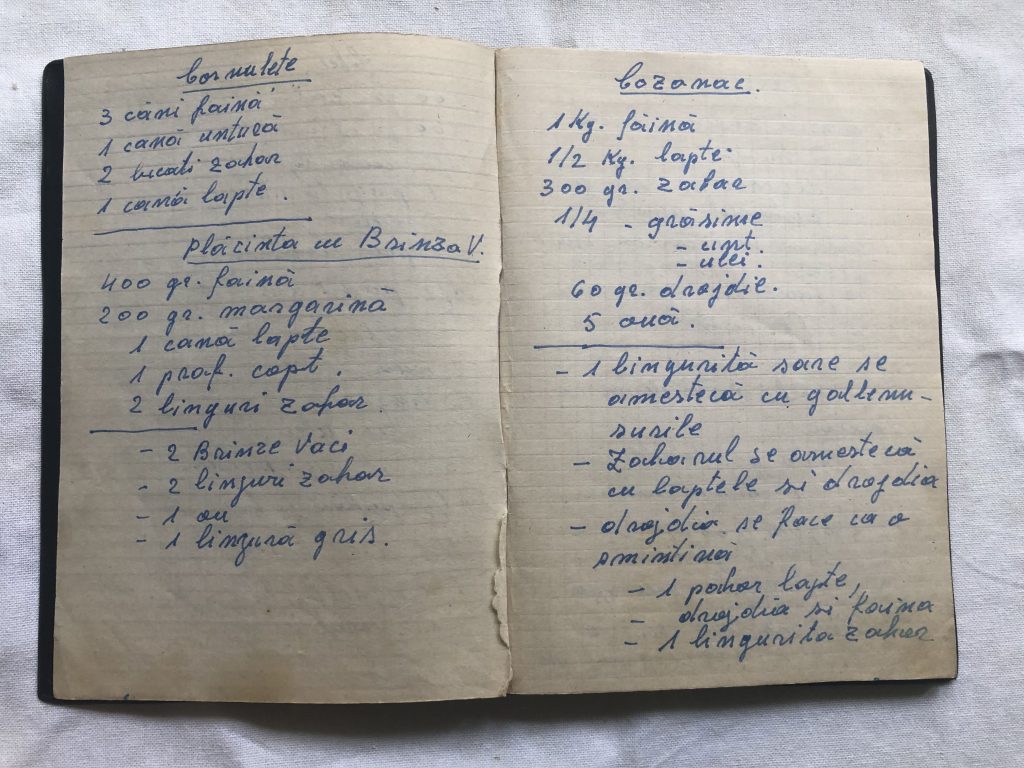 Cornulete
3 căni faină
1 cană untură
2 bucati zahar
1 cană lapte.
Plăcinta cu Brinza V.
400 gr. faină
200 gr. margarină
1 cană lapte
1 praf. copt.
2 linguri zahar.
- 2 Brinze Vaci
- 2 linguri zahar
- 1 ou
- 1 lingură gris.
Cozonac.
1 Kg. făină
1/2 Kg. lapte
300 gr. zahar
1/4 - grăsime
- unt.
- ulei.
60 gr. drojdie.
5 ouă.
- 1 linguriță sare se
amestecă cu galbenu-
surile
- Zaharul se amestecă
cu laptele si drojdia
- drojdia se face ca o
smintină
- 1 pahar lapte,
- drojdia si faina
- 1 lingurita zahar